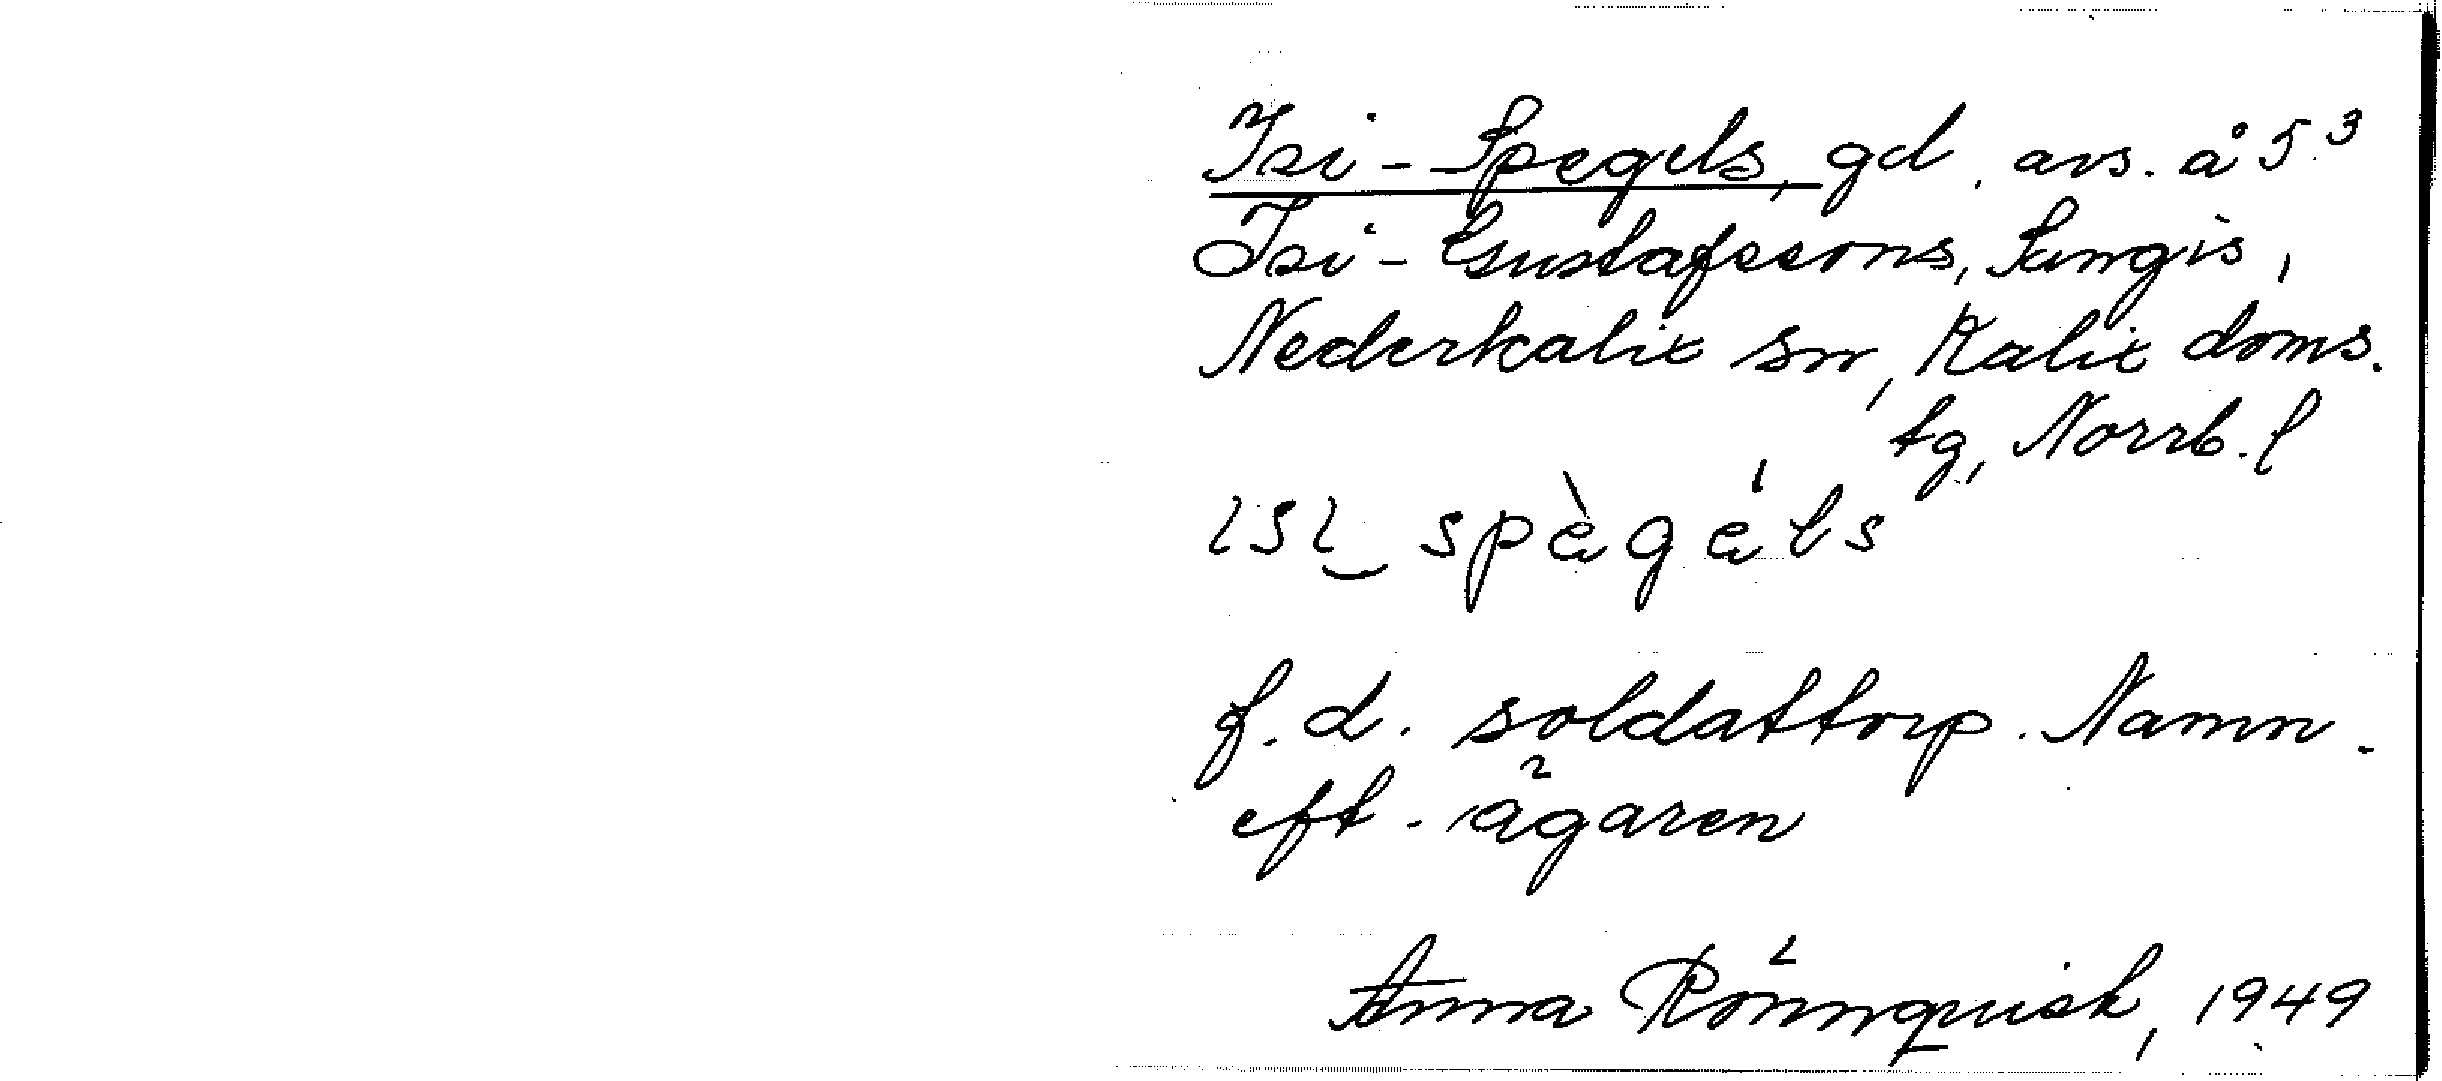 Isi-Spegels, gd. avs. å 5³
Isi-Gustafssons, Sangis,
Nederkalix sn, Kalix doms.
tg, Norrb. l
ısı_ spègéls
f.d. soldattorp. Namn.
eft. ägaren
Anna Rönnquist, 1949